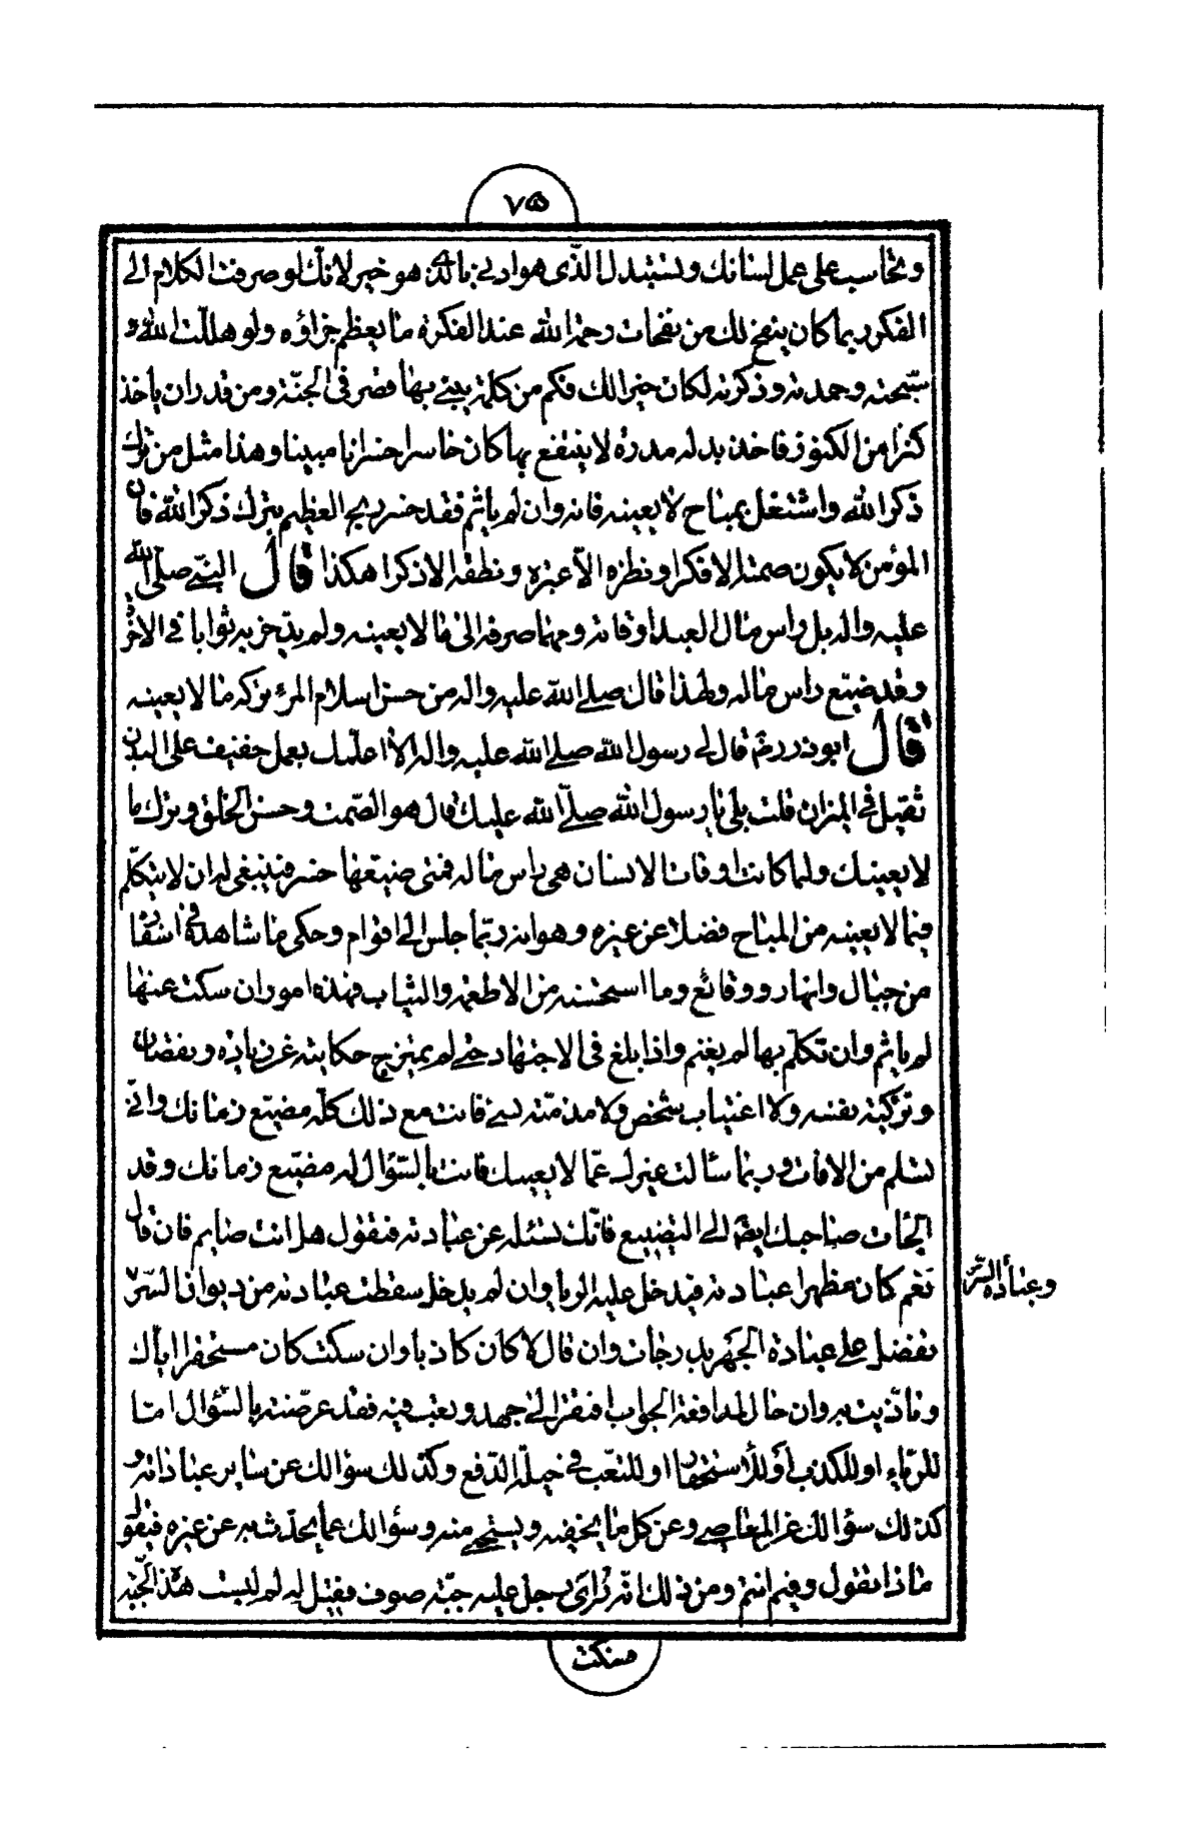 ٧٥
وتحاسب على عمل لسانك وتستبدل الذى هو ادنى بالذى هو خير لانّك لو صرفت الكلام الى
الفكر ربما كان ينفخ لك من نفحات رحمة الله عند الفكرة ما يعظم جزاؤه ولو هللت الله و
سبّحته وحمدته وذكرته لكان خيرا لك فكم من كلمة يبنى بها قصر فى الجنّة ومن قدر ان ياخذ
كنزا من الكنوز فاخذ بدله مدرة لا ينتفع بها كان خاسرا خسرانا مبينا وهذا مثل من ترك
ذكر الله واشتغل بمباح لا يعينه فانه وان لم ياثم فقد خسر ربح العظيم بترك ذكر الله فان
المؤمن لا يكون صمته الا فكرا ونظره الا عبرة ونطقه الا ذكرا هكذا قال النبى صلّى الله
عليه واله بل راس مال العبد اوقاته ومهما صرفه الى ما لا يعينه ولم يدّخر به ثوابا فى الاخرة
وقد ضيّع راس ماله ولهذا قال صلى الله عليه واله من حسن اسلام المرء تركه ما لا يعينه
قال ابوذر رضه قال لى رسول الله صلى الله عليه واله الا اعلمك بعمل خفيف على البدن
ثقيل فى الميزان قلت بلى يا رسول الله صلّى الله عليك قال هو الصّمت وحسن الخلق وترك ما
لا يعينك ولما كانت اوقات الانسان هى راس ماله فمتى ضيّعها خسر فينبغى له ان لا يتكلّم
فيما لا يعينه من المباح فضلا عن غيره وهو انه ربّما جلس الى اقوام وحكى ما شاهده فى اسفا
من جبال وانهار ووقائع وما استحسنه من الاطعمة والثياب فهذه امور ان سكت عنها
لم ياثم وان تكلّم بها لم يغنم واذا بلغ فى الاجتهاد حتى لم يمتزج حكايته غن زيادة ونقصان
وتزكية نفسه ولا اغتياب شخص ولا مذمّة لشئ فانت مع ذلك كلّه مضيّع زمانك وانّى
تسلم من الافات وربما سالت غيرك عمّا لا يعينك فانت بالسّؤال له مضيّع زمانك وقد
الجات صاحبك ايضا الى التضييع فانّك تسئله عن عبادته فتقول هل انت صايم فان قال
نعم كان مظهرا عبادته فيدخل عليه الريا وان لم يدخل سقطت عبادته من ديوان السّر
وعبادة السّر
تفضل على عبادة الجهر بدرجات وان قال لا كان كاذبا وان سكت كان مستحقرا اياك
وتاذّيت به وان حال لمدافعة الجواب افتقر الى جهد وتعب فيه فقد عرّضته بالسّؤال امّا
للرياء او للكذب او للاستحقار او للتعب فى حيلة الدّفع وكذلك سؤالك عن ساير عباداته و
كذلك سؤالك عن المعاصى وعن كل ما يخفيه ويستحيى منه وسؤالك عما يحدّث به عن غيره فيقو
ماذا تقول وفيم انتم ومن ذلك انّه راى رجل عليه جبّة صوف فقيل له لم لبست هذه الجبّة
فسكت